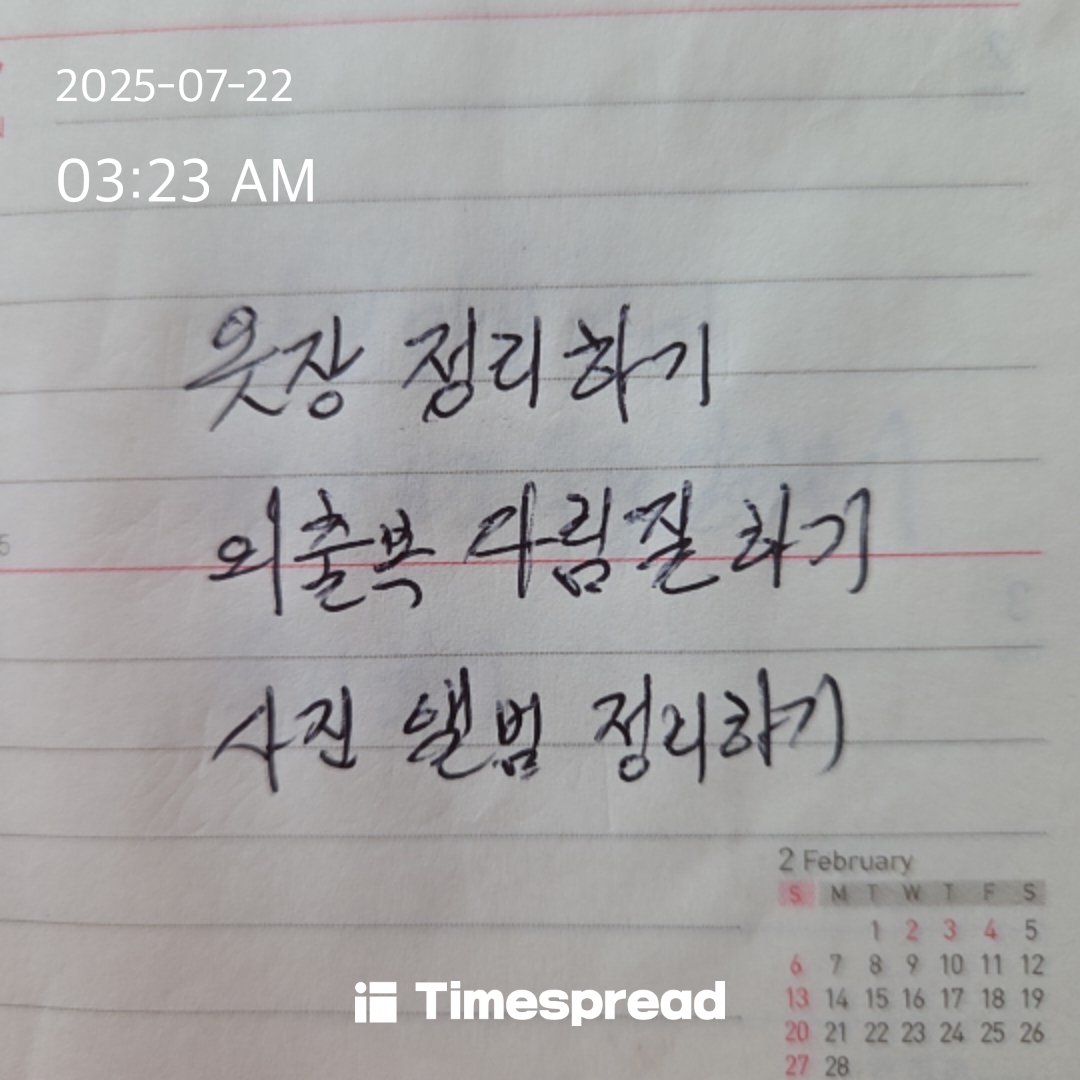 2025-07-22
03:23 AM
옷장 정리하기
외출복 다림질하기
사진 앨범 정리하기
2 February
S M T W T F S
1 2 3 4 5
6 7 8 9 10 11 12
13 14 15 16 17 18 19
20 21 22 23 24 25 26
27 28
Timespread